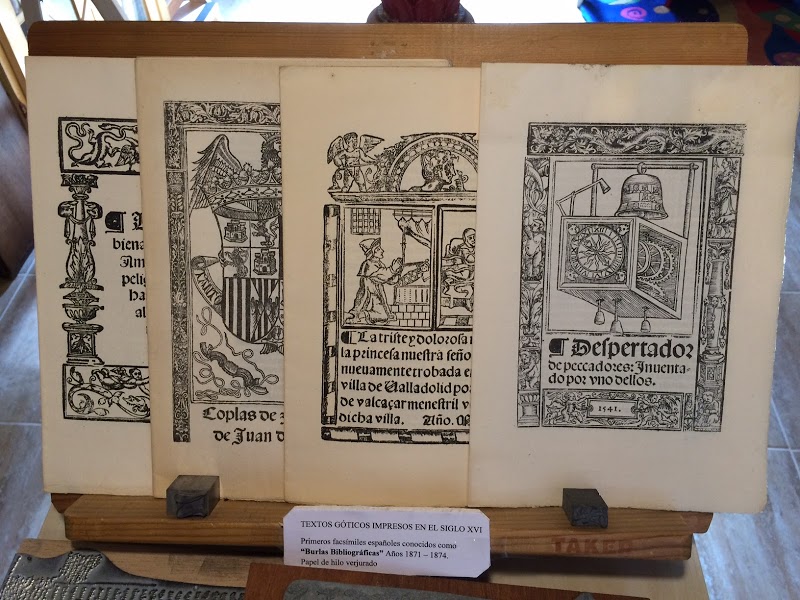 biena
Am
pelig
ha
al
Coplas de
de Juan d
¶ La triste y dolorosa
la princesa nuestra seño
nueuamente trobada e
villa de Valladolid po
de valcaçar menestril v
dicha villa. Año.
¶ Despertador
de peccadores: Inuenta-
do por vno dellos.
1541.
TEXTOS GÓTICOS IMPRESOS EN EL SIGLO XVI
Primeros facsímiles españoles conocidos como
“Burlas Bibliográficas” Años 1871 – 1874.
Papel de hilo verjurado
TAKER